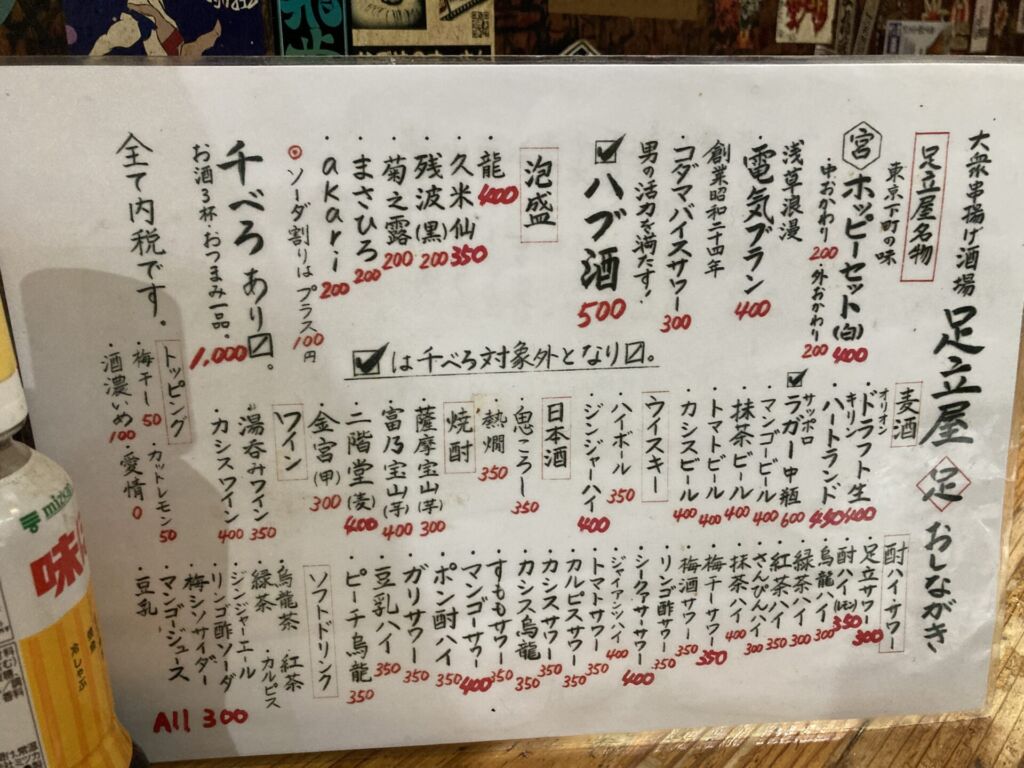 大衆串揚げ酒場
足立屋
足
おしながき
足立屋名物
東京下町の味
宮 ホッピーセット(白) 400
・中おかわり 200 ・外おかわり 200
浅草浪漫
・電気ブラン 400
創業昭和二十四年
・コダマバイスサワー 300
男の活力を満たす!
ハブ酒 500
泡盛
・龍 400
・久米仙 350
・残波(黒) 200
・菊之露 200
・まさひろ 200
・akari 200
◎ソーダ割りはプラス100円
千べろあり〼。
お酒3杯・おつまみ一品。 1,000
全て内税です。
は千べろ対象外となり〼。
麦酒
オリオン
・ドラフト生 400
キリン
・ハートランド 450
サッポロ
・ラガー中瓶 600
・マンゴービール 400
・抹茶ビール 400
・トマトビール 400
・カシスビール 400
ウイスキー
・ハイボール 350
・ジンジャーハイ 400
日本酒
・鬼ころし 350
・熱燗 350
焼酎
・薩摩宝山(芋) 300
・富乃宝山(芋) 400
・二階堂(麦) 400
・金宮(甲) 300
ワイン
・湯呑みワイン 350
・カシスワイン 400
トッピング
・梅干し 50 ・カットレモン 50
・酒濃いめ 100 ・愛情 0
酎ハイ・サワー
・足立サワー 300
・酎ハイ(レモン) 350
・烏龍ハイ 300
・緑茶ハイ 300
・紅茶ハイ 350
・さんぴんハイ 300
・抹茶ハイ 400
・梅干サワー 350
・梅酒サワー 350
・リンゴ酢サワー 350
・シークァーサワー 400
・ジャイアンツハイ 400
・トマトサワー 350
・カルピスサワー 350
・カシスサワー 350
・カシス烏龍 350
・すももサワー 350
・マンゴーサワー 400
・ポン酎ハイ 350
・ガリサワー 350
・豆乳ハイ 350
・ピーチ烏龍 350
ソフトドリンク
・烏龍茶 ・紅茶
・緑茶 ・カルピス
・ジンジャーエール
・リンゴ酢ソーダ
・梅シソサイダー
・マンゴージュース
・豆乳
All 300
mizkan
味
冷しゃぶ